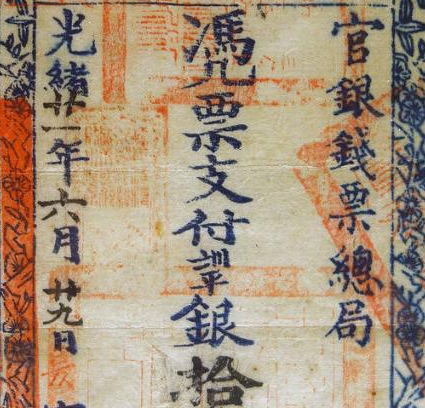 官銀錢票總局
凴票支付銀拾
光緒廿一年六月廿九日